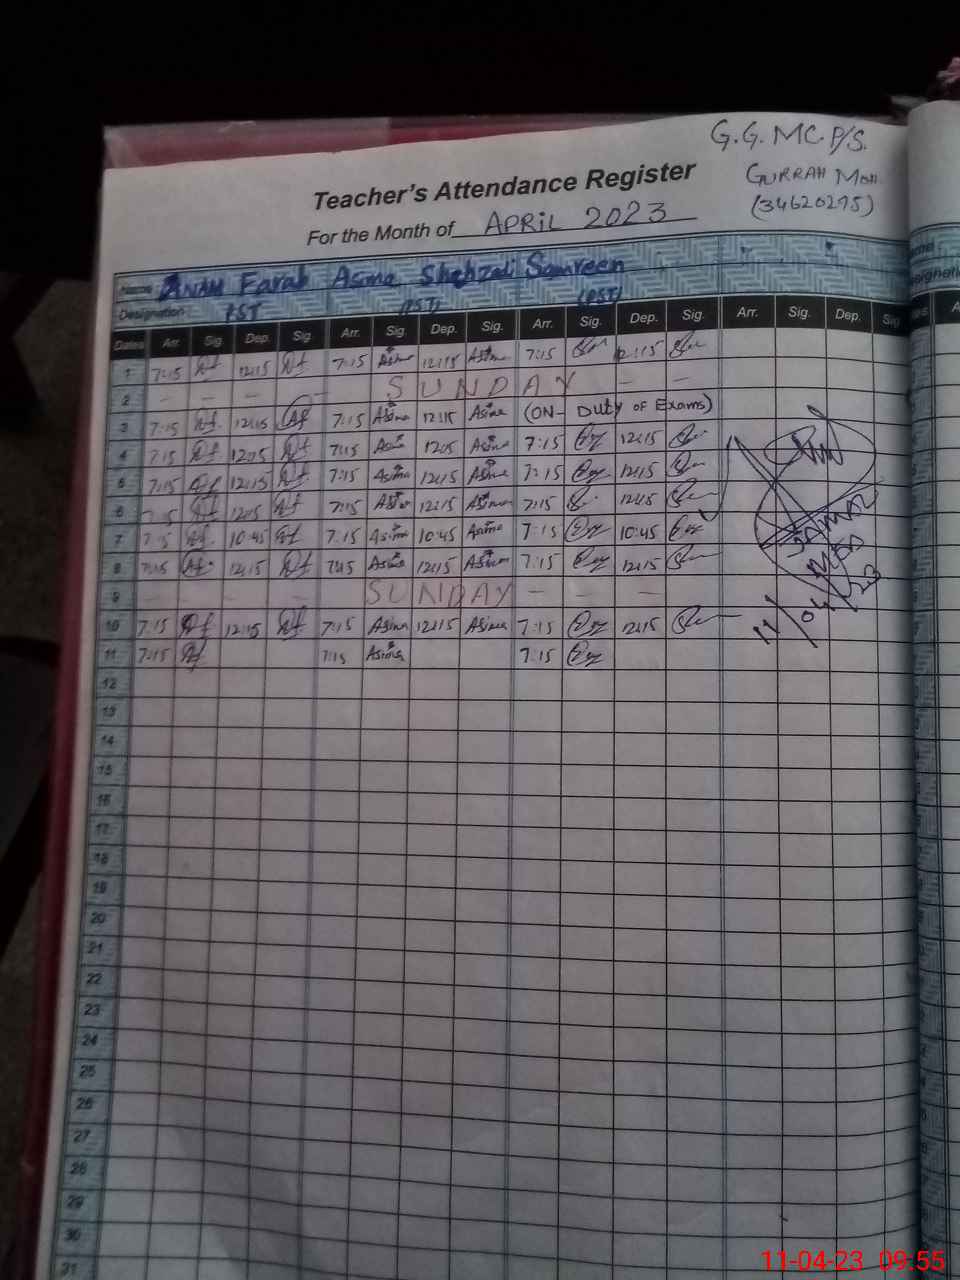 G.G.MC.P/S.
GURRAH MOH
(34620295)
Teacher's Attendance Register
For the Month of APRIL 2023
Name ANAM Farah Asma Shehzadi Samreen
Designation PST (PST) (PST)
Dates Arr. Sig. Dep. Sig. Arr. Sig. Dep. Sig. Arr. Sig. Dep. Sig. Arr. Sig. Dep. Sig
1 7:15 12:15 7:15 Asima 12:15 Asima 7:15 12:15
2 - - - - SUNDAY - -
3 7:15 12:15 7:15 Asima 12:15 Asima (ON- Duty of Exams)
4 7:15 12:15 7:15 Asima 12:15 Asima 7:15 12:15
5 7:15 12:15 7:15 Asima 12:15 Asima 7:15 12:15
6 7:15 12:15 7:15 Asima 12:15 Asima 7:15 12:15
7 7:15 10:45 7:15 Asima 10:45 Asima 7:15 10:45
8 7:15 12:15 7:15 Asima 12:15 Asima 7:15 12:15
9 - - - - SUNDAY - - -
10 7:15 12:15 7:15 Asima 12:15 Asima 7:15 12:15
11 7:15 7:15 Asima 7:15
11/04/23
12
13
14
15
16
17
18
19
20
21
22
23
24
25
26
27
28
29
30
31
11-04-23 09:55